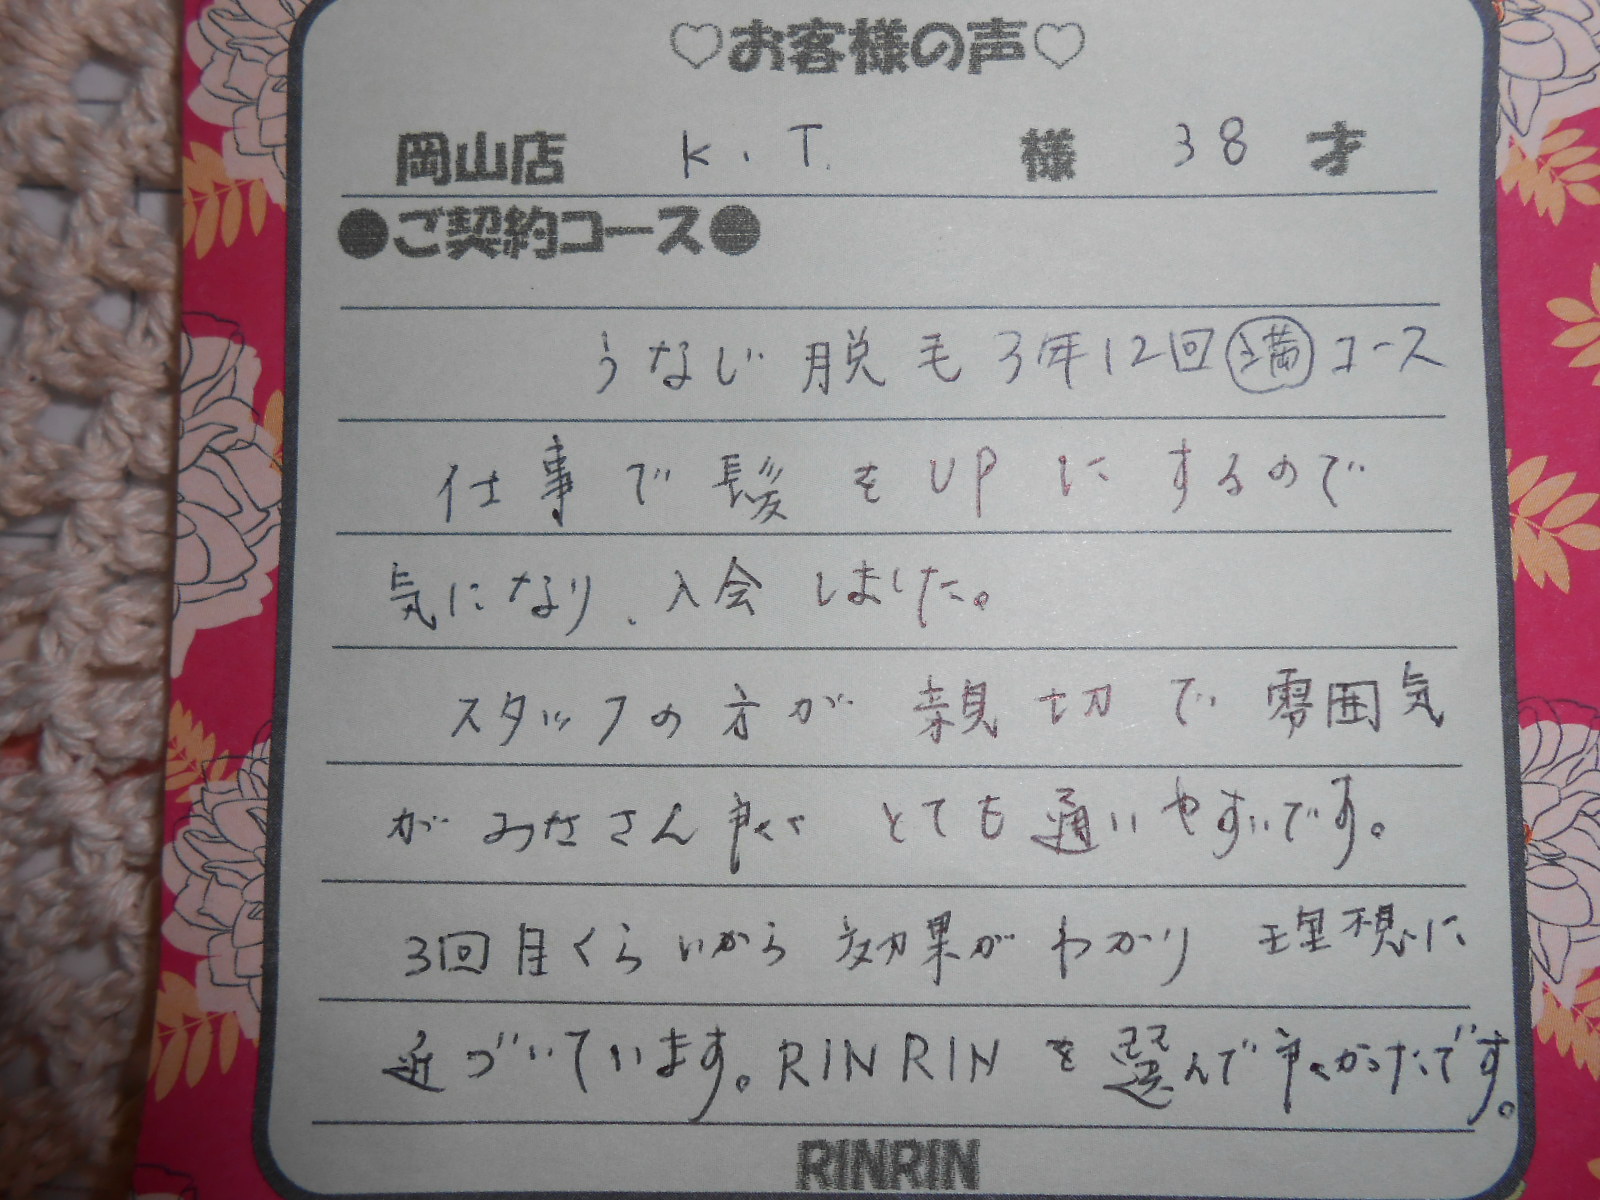 ♡お客様の声♡
岡山店 K.T. 様 38 才
●ご契約コース●
うなじ脱毛3年12回満コース
仕事で髪をUPにするので
気になり、入会しました。
スタッフの方が親切で雰囲気
がみなさん良くとても通いやすいです。
3回目くらいから効果がわかり理想に
近づいています。RINRINを選んで良かったです。
RINRIN